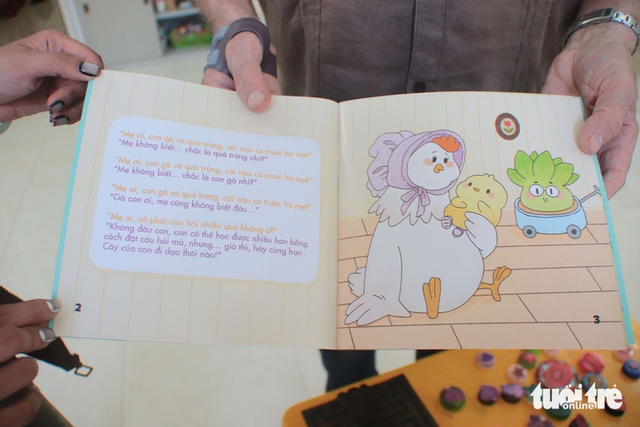 "Mẹ ơi, con gà và quả trứng, cái nào có trước hả mẹ?"
"Mẹ không biết... chắc là quả trứng nhỉ?"
"Mẹ ơi, con gà và quả trứng, cái nào có trước hả mẹ?"
"Mẹ không biết... chắc là con gà nhỉ?"
"Mẹ ơi, con gà và quả trứng, cái nào có trước hả mẹ?"
"Gà con ơi, mẹ cũng không biết đâu..."
"Mẹ ơi, có phải con hỏi nhiều quá không ạ?"
"Không đâu con, con có thể học được nhiều hơn bằng
cách đặt câu hỏi mà, nhưng... giờ thì, hãy cùng bạn
Cây của con đi dạo thôi nào!"
2
3
tuổi trẻ
online